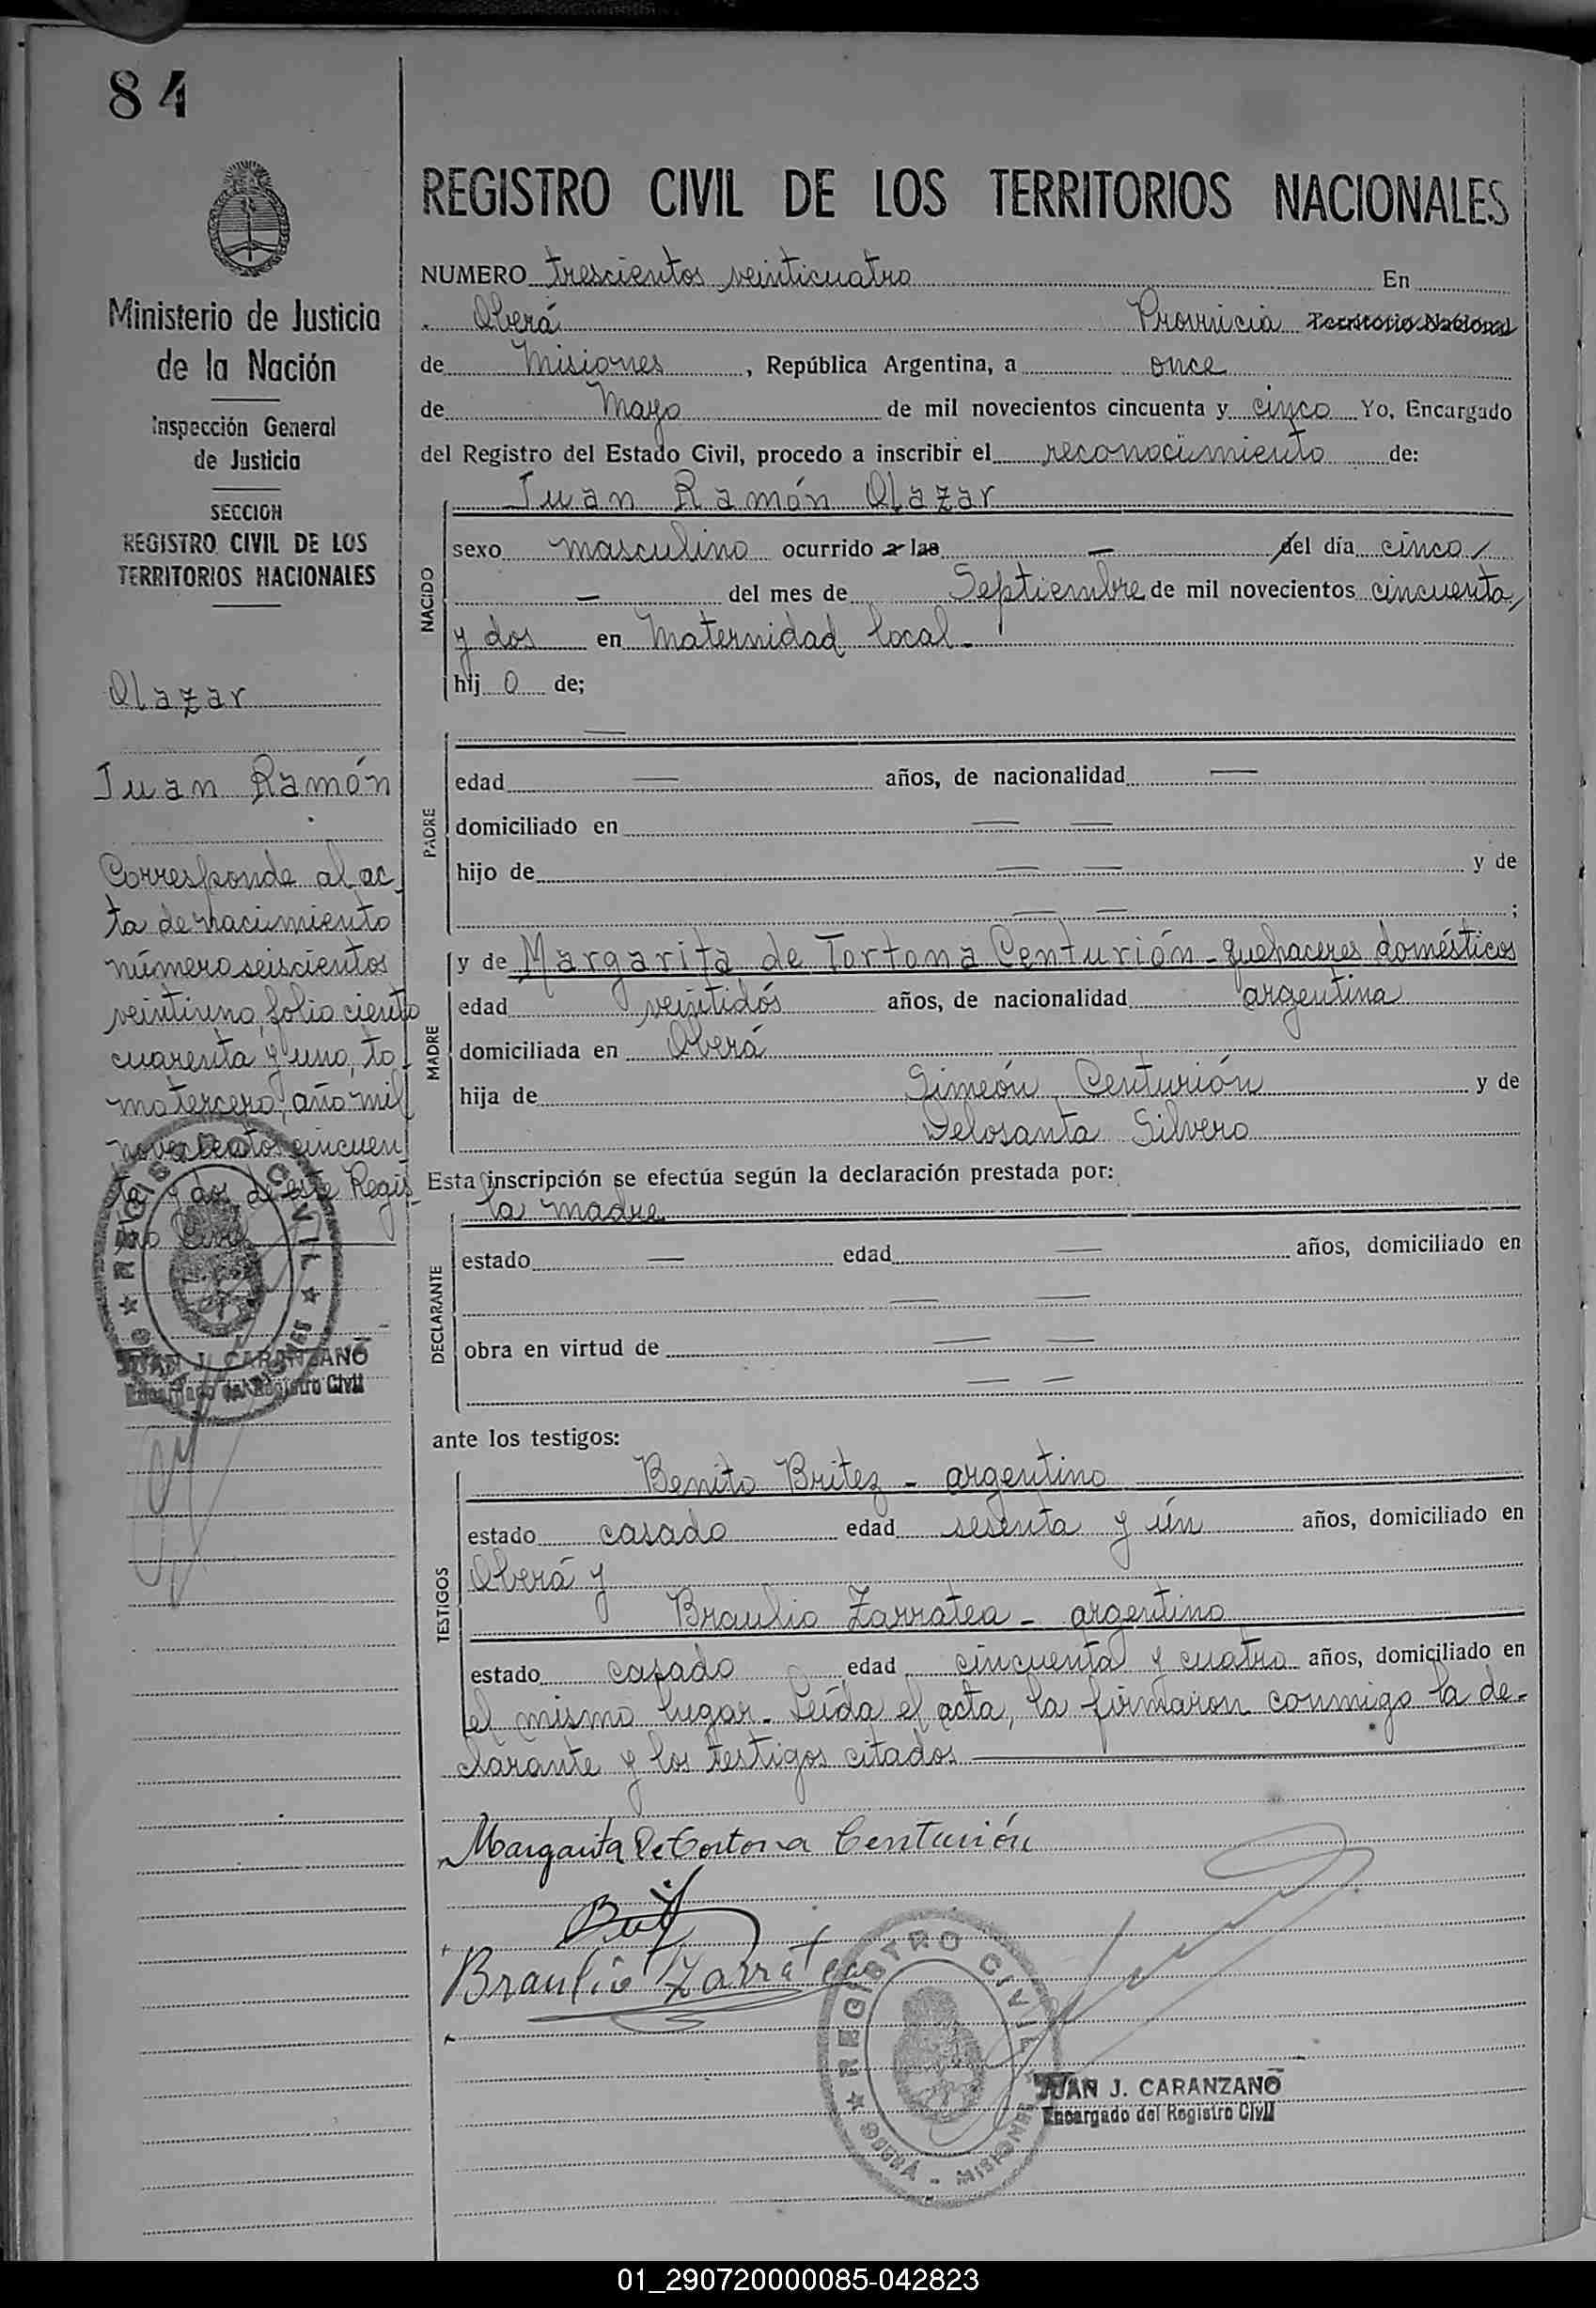 84
Ministerio de Justicia
de la Nación
Inspección General
de Justicia
SECCION
REGISTRO CIVIL DE LOS
TERRITORIOS NACIONALES
Olazar
Juan Ramón
Corresponde al ac-
ta de nacimiento
número seiscientos
veintiuno, folio ciento
cuarenta y uno, to-
mo tercero, año mil
novecientos cincuen
ta y dos de este Regis-
tro Civil
REGISTRO CIVIL
JUAN J. CARANZANO
Encargado del Registro Civil
REGISTRO CIVIL DE LOS TERRITORIOS NACIONALES
NUMERO trescientos veinticuatro En
Oberá Provincia Territorio Nacional
de Misiones, República Argentina, a once
de Mayo de mil novecientos cincuenta y cinco Yo, Encargado
del Registro del Estado Civil, procedo a inscribir el reconocimiento de:
Juan Ramón Olazar
NACIDO
sexo masculino ocurrido a las — del día cinco
— del mes de Septiembre de mil novecientos cincuenta
y dos en Maternidad local.-
hij o de;
PADRE
—
edad — años, de nacionalidad —
domiciliado en — —
hijo de — — y de
— — ;
MADRE
y de Margarita de Tortona Centurión - quehaceres domésticos
edad veintidós años, de nacionalidad argentina
domiciliada en Oberá
hija de Simeón Centurión y de
Delosanta Silvero
Esta inscripción se efectúa según la declaración prestada por:
la madre
DECLARANTE
estado — edad — años, domiciliado en
— —
obra en virtud de — —
— —
ante los testigos:
TESTIGOS
Benito Britez - argentino
estado casado edad sesenta y ún años, domiciliado en
Oberá y
Braulio Zarratea - argentino
estado casado edad cincuenta y cuatro años, domiciliado en
el mismo lugar. Leída el acta, la firmaron conmigo la de-
clarante y los testigos citados
Margarita De Cortona Centurión
Braulio Zarratea
REGISTRO CIVIL
OBERÁ - MISIONES
JUAN J. CARANZANO
Encargado del Registro Civil
01_290720000085-042823